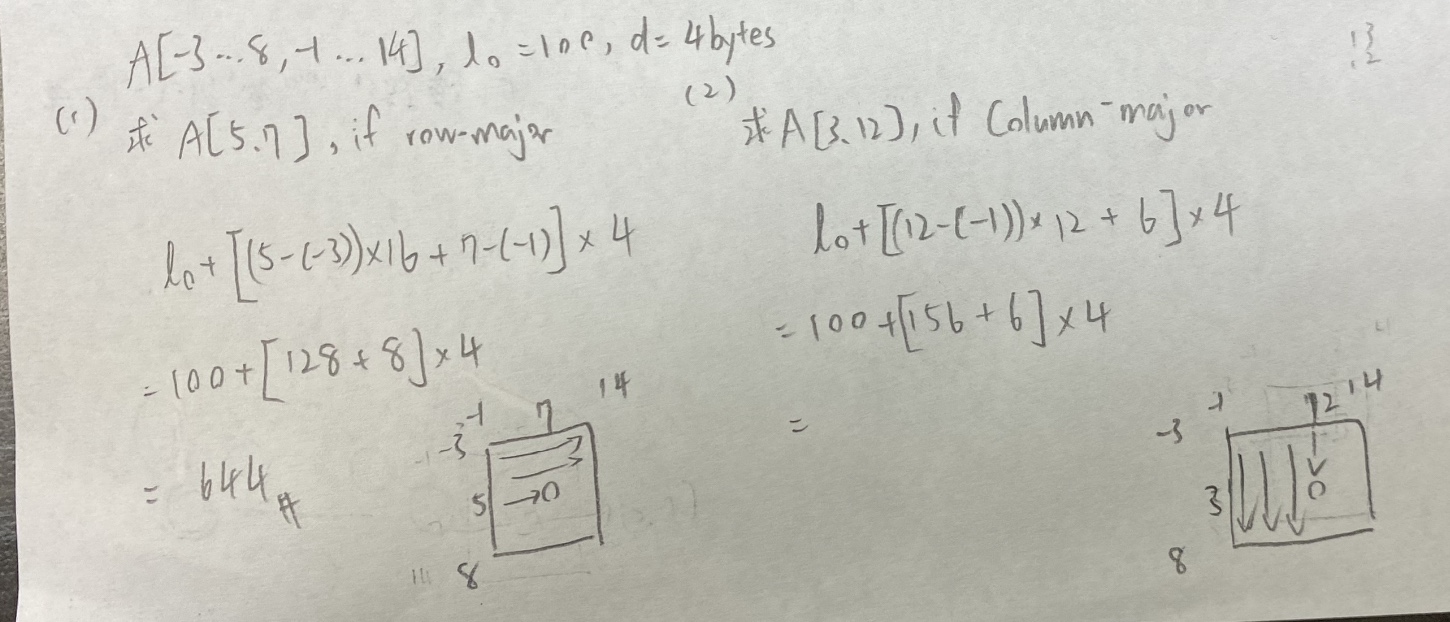 A[-3...8, -1...14], l₀ = 100, d = 4bytes
(1) 求 A[5.7], if row-major
l₀ + [(5-(-3))×16 + 7-(-1)] × 4
= 100 + [128 + 8] × 4
= 644 #
-1 7 14
-3
5 → 0
8
(2) 求 A[3.12], if Column-major
l₀ + [(12-(-1))×12 + 6] × 4
= 100 + [156 + 6] × 4
=
-1 12 14
-3
3 0
8